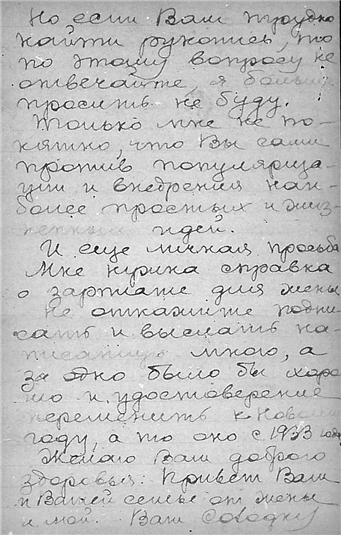 Но если Вам трудно
найти рукопись, то
по этому вопросу не
отвечайте, я больше
просить не буду.
Только мне не по-
нятно, что Вы сами
против популяриза-
ции и внедрения наи-
более простых и жиз-
ненных идей.
И еще личная просьба
Мне нужна справка
о зарплате для жены
Не откажите подпи-
сать и выслать на-
писанную мною, а
за одно было бы хоро
шо и удостоверение
переменить к Новому
году, а то оно с 1933 года
Желаю Вам доброго
здоровья. Привет Вам
и Вашей семье от жены
и мой. Ваш